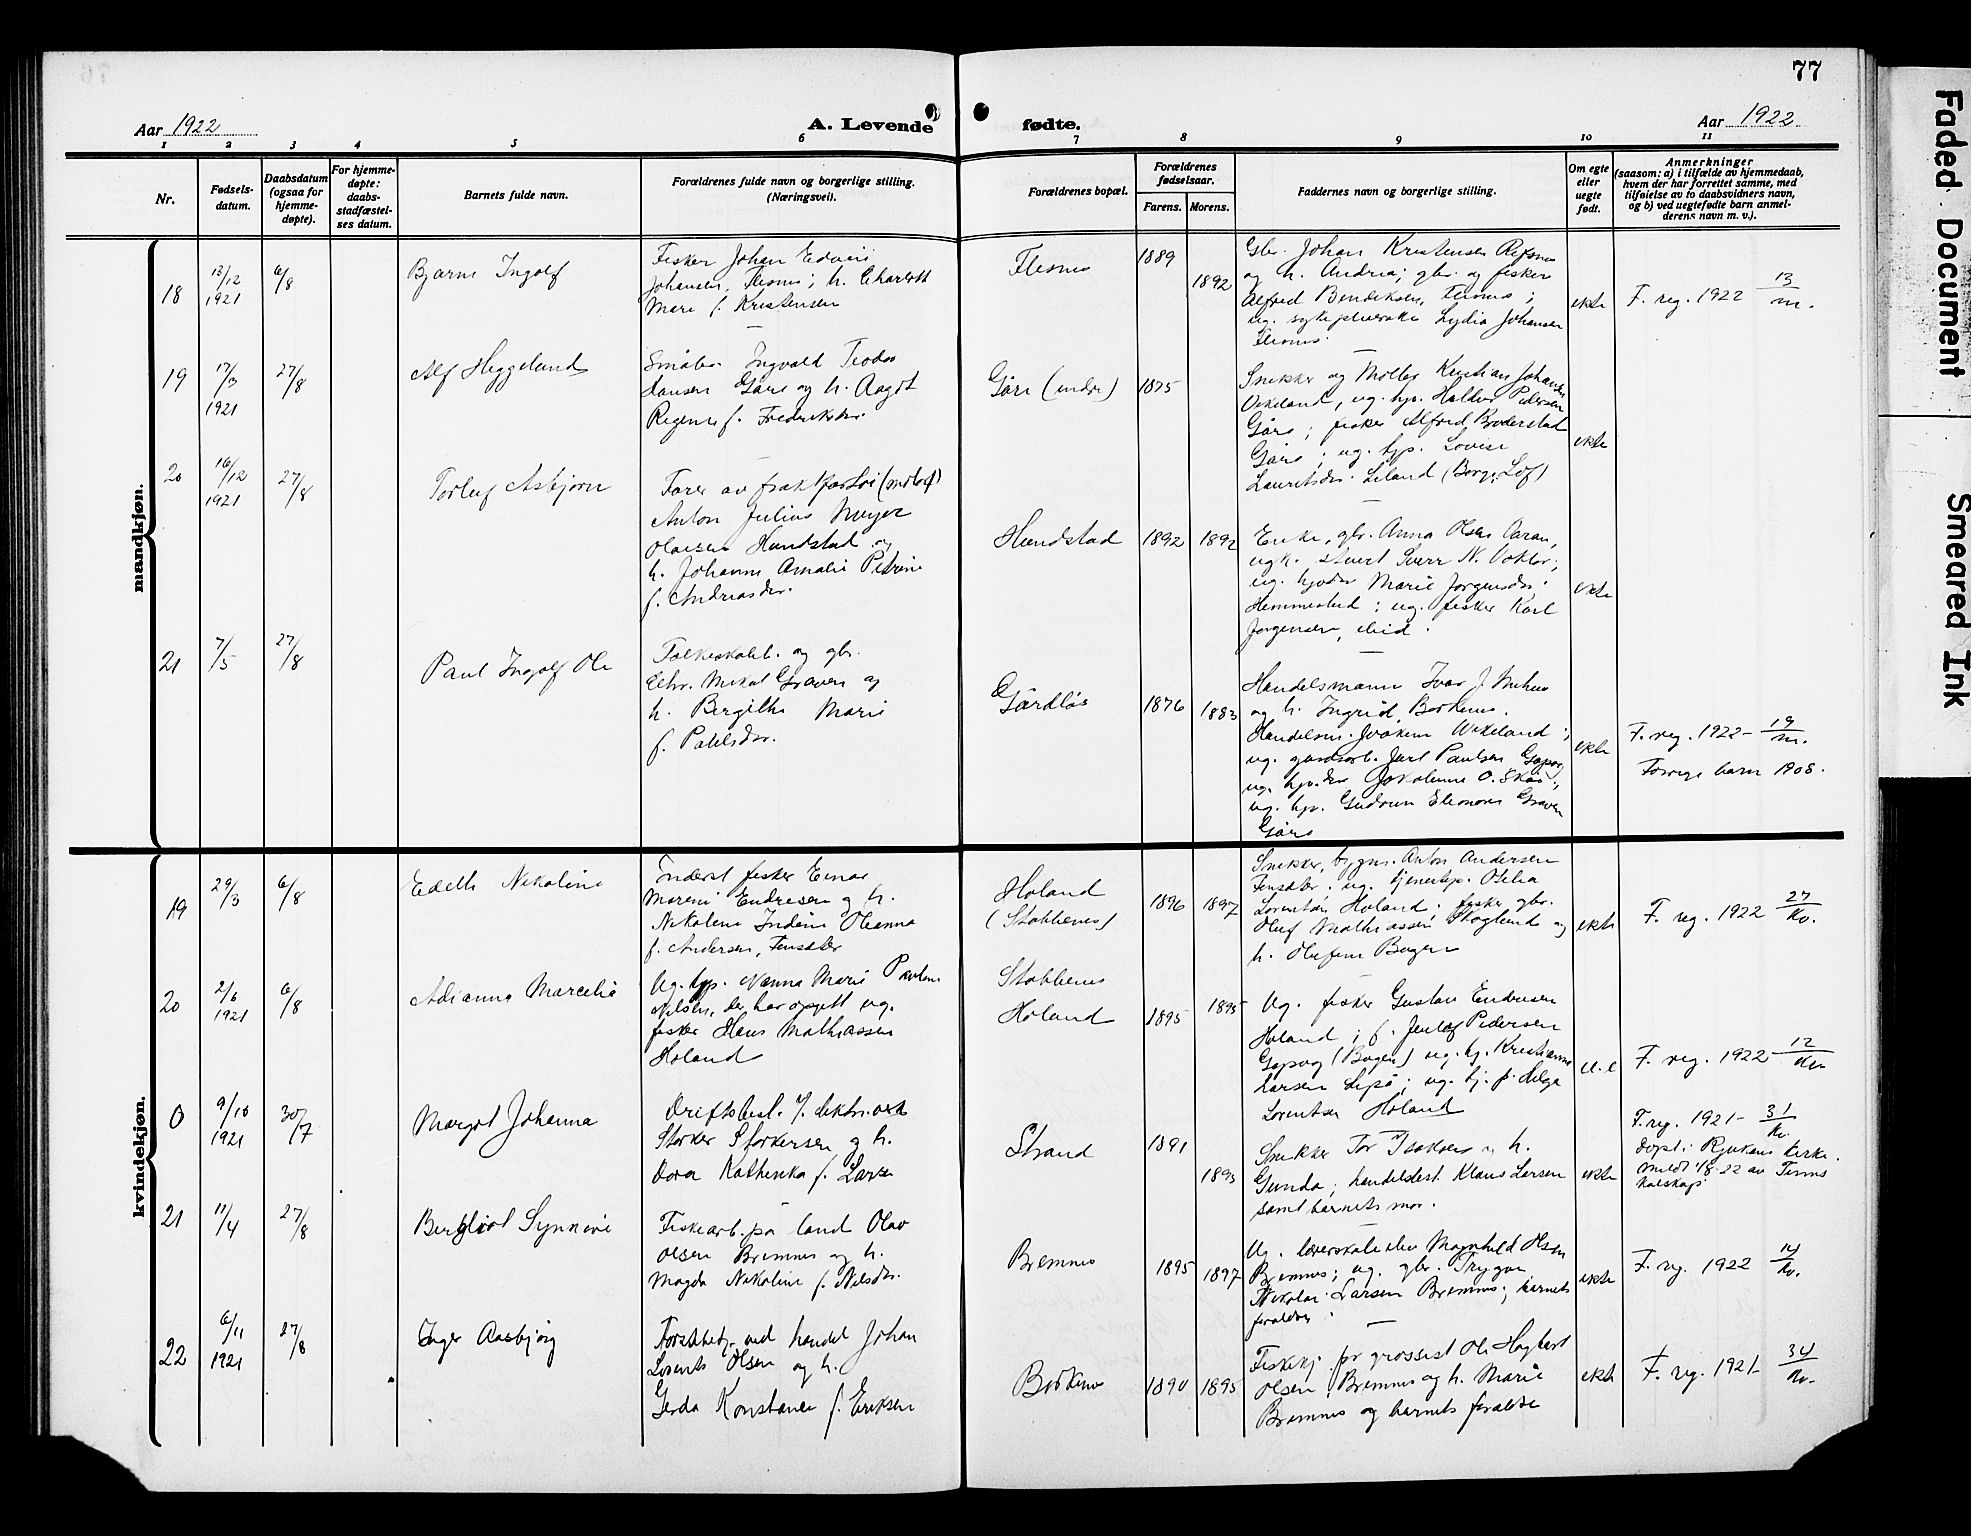 77
Aar 1922
A. Levende
fødte.
Aar 1922.
1 2 3 4 5 6 7 8 9 10 11
Nr.
Fødsels-
datum.
Daabsdatum
(ogsaa for
hjemme-
døpte).
For hjemme-
døpte:
daabs-
stadfæstel-
ses datum.
Barnets fulde navn.
Forældrenes fulde navn og borgerlige stilling.
(Næringsvei).
Forældrenes bopæl.
Forældrenes
fødselsaar.
Farens.
Morens.
Faddernes navn og borgerlige stilling.
Om egte
eller
uegte
født.
Anmerkninger
(saasom: a) i tilfælde av hjemmedaab,
hvem der har forrettet samme, med
tilføielse av to daabsvidners navn,
og b) ved uegtefødte barn anmel-
derens navn m. v.).
mandkjøn.
18
13/12
1921
6/8
Bjarne Ingolf
Fisker Johan Edvin
Johansen, Flesnes; h. Charlott
Marie f. Kristensen
Flesnes
1889
1892
Gbr. Johan Kristensen Refsnes
og h. Andrea; gbr. og fisker
Alfred Bendiksen, Flesnes;
ug. sykepleierske Lydia Johansen
Flesnes.
ekte
F. reg. 1922 13/m.
19
17/3
1921
27/8
Alf Heggelund
Småbr. Ingvald Teodor
Hansen Gåre og h. Aagot
Regine f. Frederiksdr.
Gåre (indre)
1875
Snekker og Møller Kristian Johansen
Vikeland, ug. hp. Haldis Pedersen
Gåre; fisker Alfred Broderstad
Gåre; ug. hp. Lovise
Lauritsdr. Leland (Borge, Lof)
ekte
20
16/12
1921
27/8
Torleif Asbjørn
Fører av fraktfartøi (motorf)
Anton Julius Meyer
Olaisen Hundstad og
h. Johanna Amalie Petrine
f. Andreasdr.
Hundstad
1892
1892
Enke, gbr. Anna Olsen Aaran,
ugk. stuert Sverr N. Vokter,
ug. hjvdr Marie Jørgensdr.
Hemmestad; ug. fisker Karl
Jørgensen, ibid.
ekte
21
7/5
27/8
Paul Ingolf Ole
Folkeskolel. og gbr.
Chr. Mikal Graven og
h. Bergithe Marie
f. Paulsdr.
Gårdløs
1876
1883
Handelsmann Ivar J. Mehus
og h. Ingrid, Borkenes.
Handelsm. Joakim Vikeland;
ug. gaardsarb. Jarl Paulsen Gapøy
ug. hjv. dr Jakobine O. Skår;
ug. hp. Gudrun Eleonora Graven
Gåre
ekte
F. reg. 1922- 19/m.
Forrige barn 1908.
kvindekjøn.
19
29/3
6/8
Edith Nikoline
Inderst fisker Einar
Mareni Endresen og h.
Nikoline Indine Oleanna
f. Andersen, Fensæter
Holand
(Stobbenes)
1896
1897
Snekker, bygns. Anton Andersen
Fensæter. ug. tjenestep. Otelia
Lorentsen Holand; fisker gbr.
Oluf Mathiassen Skoglund og
h. Olufine Bogen
ekte
F. reg. 1922 27/Kv.
20
2/6
1921
6/8
Adianna Marcelie
Ug. hp. Nanna Marie Pauline
Nilsen, der har opgitt ug.
fisker Hans Mathiassen
Holand
Stobbenes
Holand
1895
1895
Ug. fisker Gustav Endresen
Holand; f. Jentof Pedersen
Gapøy (Bogen) ug. hj. Kristianna
Larsen Lepsø; ug. hj. p. Helga
Lorentsen Holand
u. e
F. reg. 1922 12/Kv.
0
9/10
1921
30/7
Margot Johanna
Driftsbest. v. elektr. verk
Storker Storkersen og h.
Dora Kathinka f. Larsen
Strand
1891
1893
Snekker Tor Isaksen og h.
Gunda; handelsbest. Klaus Larsen
samt barnets mor.
ekte
F. reg. 1921- 31/Kv.
Døpt i Rjukans kirke.
Meldt 1/8-22 av Tinns
kalskap
21
11/4
27/8
Bergliot Synnøve
Fiskearb. på land Olav
Olsen Bremnes og h.
Magda Nikoline f. Nilsdr.
Bremnes
1895
1897
Ug. lærerskoleelev Magnhild Olsen
Bremnes; ug. gbr. Trygve
Nikolai Larsen Bremnes; barnets
foreldre.
ekte
F. reg. 1922 14/Kv.
22
6/11
1921
27/8
Inger Aasbjørg
Forstbetj. ved handel Johan
Lorents Olsen og h.
Gerda Konstanse f. Eriksen
Borkenes
1890
1895
Fiskekj. for grossist Ole Hagbart
Olsen Bremnes og h. Marie
Bremnes og barnets foreldre
ekte
F. reg. 1921- 34/Kv.
Faded Document
Smeared Ink